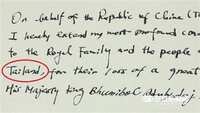 On behalf of the Republic of China (T
I hereby extend my most profound con
to the Royal Family and the people o
Tailand, for their loss of a great
His Majesty King Bhumibol Adulyadej